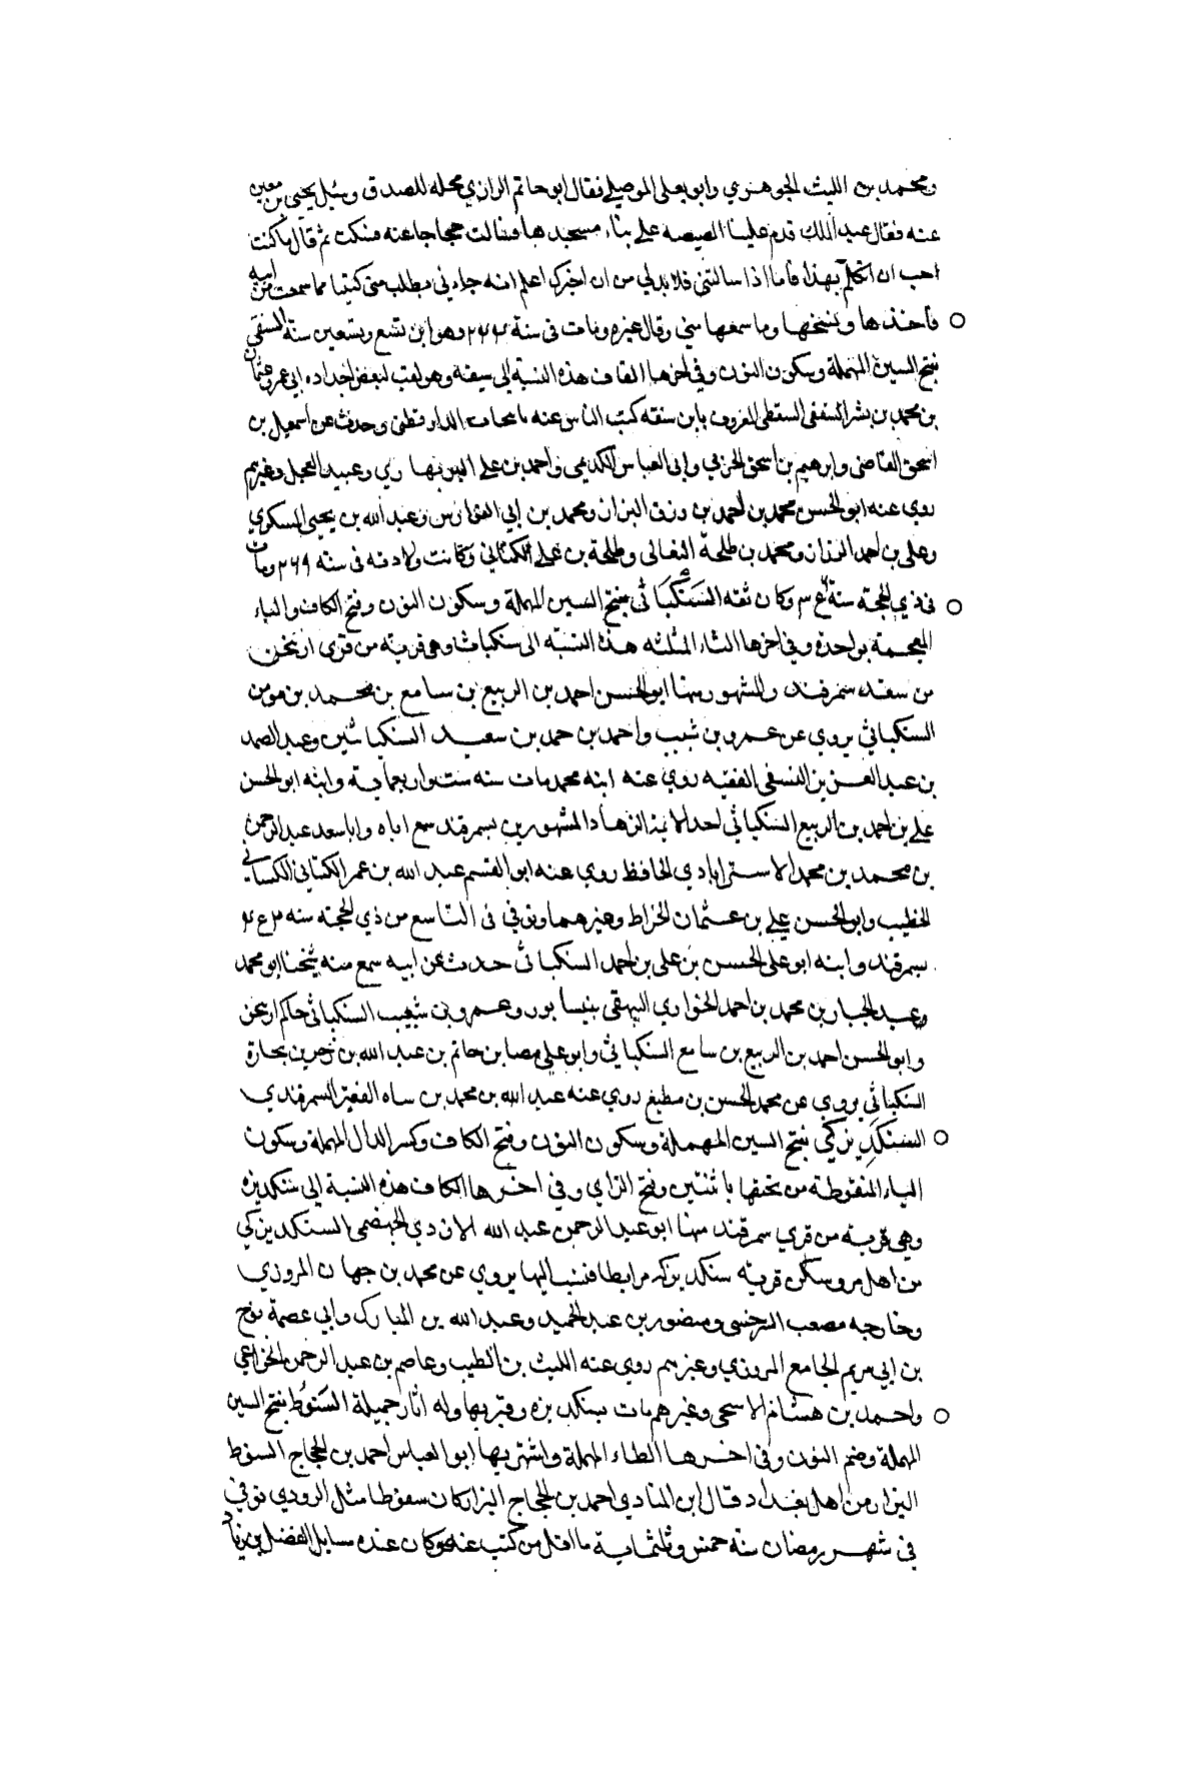 ومحمد بن الليث الجوهري وابو يعلى الموصلي فقال ابو حاتم الرازي محله للصدق وسئل يحيى بن معين
عنه فقال عبد الملك قدم علينا المصيصه على بناء مسجدها فقالت حجاجا عنه فسكت ثم قال ما كنت
احب ان اتكلم بهذا فاما اذا سالتني فلا بد لي من ان اخبرك اعلم انه جاءني مطلب مني كتبا مما سمعت من ابيه
فاخذها ونسخها وما سمعها مني وقال غيره ومات في سنة وهو ابن تسع وتسعين سنة السنقي
بفتح السين المهملة وسكون النون وفي اخرها القاف هذه النسبة الى سيقه وهو لقب لبعض اجداده ابي عمرو عثمان
بن محمد بن بشر السنقي السقطي المعروف بابن سنقه كتب الناس عنه بانتخاب الدارقطني وحدث عن اسمعيل بن
اسحق القاضي وابرهيم بن اسحق الحربي وابي العباس الكديمي واحمد بن علي البربهاري وعبيد العجل وغيرهم
روي عنه ابو الحسن محمد بن احمد بن رزق البزان ومحمد بن ابي الفوارس وعبد الله بن يحيى السكري
وعلي بن احمد الرزان ومحمد بن طلحة النعالي وطلحة بن علي الكتاني وكانت ولادته في سنه ٢٦٩ ومات
في ذي الحجة سنة وكان ثقه السَنكَبَاثي بفتح السين المهملة وسكون النون وفتح الكاف والباء
المعجمة بواحدة وفي اخرها الثاء المثلثه هذه النسبة الى سنكباث وهي قرية من قرى اربنجن
من سغد سمرقند والمشهور منها ابو الحسن احمد بن الربيع بن سامع بن محمد بن مومن
السنكباثي يروي عن عمرو بن شبب واحمد بن حمد بن سعيد السنكباثيين وعبد الصمد
بن عبد العزيز النسفي الفقيه روي عنه ابنه محمد مات سنه ست واربعماية وابنه ابو الحسن
علي بن احمد بن الربيع السنكباثي احد الائمة الزهاد المشهورين بسمرقند سمع اباه وابا سعد عبد الرحمن
بن محمد بن محمد الاسترابادي الحافظ روي عنه ابو القسم عبد الله بن عمر الكتاني الكساني
الخطيب وابو الحسن علي بن عثمان الخراط وغيرهما وتوفي في التاسع من ذي الحجة سنه
بسمرقند وابنه ابو علي الحسن بن علي بن احمد السنكباثي حدث عن ابيه سمع منه شيخنا ابو محمد
وعبد الجبار بن محمد بن احمد الخواري البيهقي بنيسابور وعمرو بن شعيب السنكباثي حاكم اربنجن
وابو الحسن احمد بن الربيع بن سامع السنكباثي وابو علي مصا بن حاتم بن عبد الله بن زحرين بحارة
السنكباثي يروي عن محمد الحسن بن مطيع روي عنه عبد الله بن محمد بن ساه الفقيه السمرقندي
السَنكَدِيزكي بفتح السين المهملة وسكون النون وفتح الكاف وكسر الدال المهملة وسكون
الياء المنقوطة من تحتها باثنتين وفتح الزاي وفي اخرها الكاف هذه النسبة الى سنكديزه
وهي قرية من قري سمرقند منها ابو عبد الرحمن عبد الله الازدي الجهضمي السنكديزكي
من اهل مرو سكن قرية سنكديزكه مرابطا فنسب اليها يروي عن محمد بن جهان المروزي
وخارجه مصعب السرخسي ومنصور بن عبد الحميد وعبد الله بن المبارك وابي عصمة نوح
بن ابي مريم الجامع المروزي وغيرهم روي عنه الليث بن الطيب وعاصم بن عبد الرحمن الخزاعي
واحمد بن هشام الاسحي وغيرهم مات بسنكديزه وقبر بها وله اثار جميلة السَنوُط بفتح السين
المهملة وضم النون وفي اخرها الطاء المهملة واشتهر بها ابو العباس احمد بن الحجاج السنوط
البزار من اهل بغداد قال ابن المنادي احمد بن الحجاج البزار كان سنوطا مثل الزودي توفي
في شهر رمضان سنة خمس وثلثماية ما اقل من كتب عنه وكان عنده مسايل الفضل بن زياد